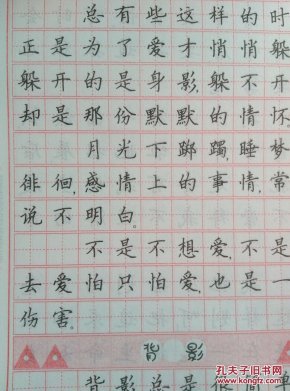 总有些这样的时
正是为了爱才悄悄躲
躲开的是身影,躲不开
却是那份默默的情怀
月光下踯躅,睡梦
徘徊,感情上的事情,常
说不明白。
不是不想爱,不是
去爱怕只怕爱,也是一
伤害。
背影
背影总是很简单